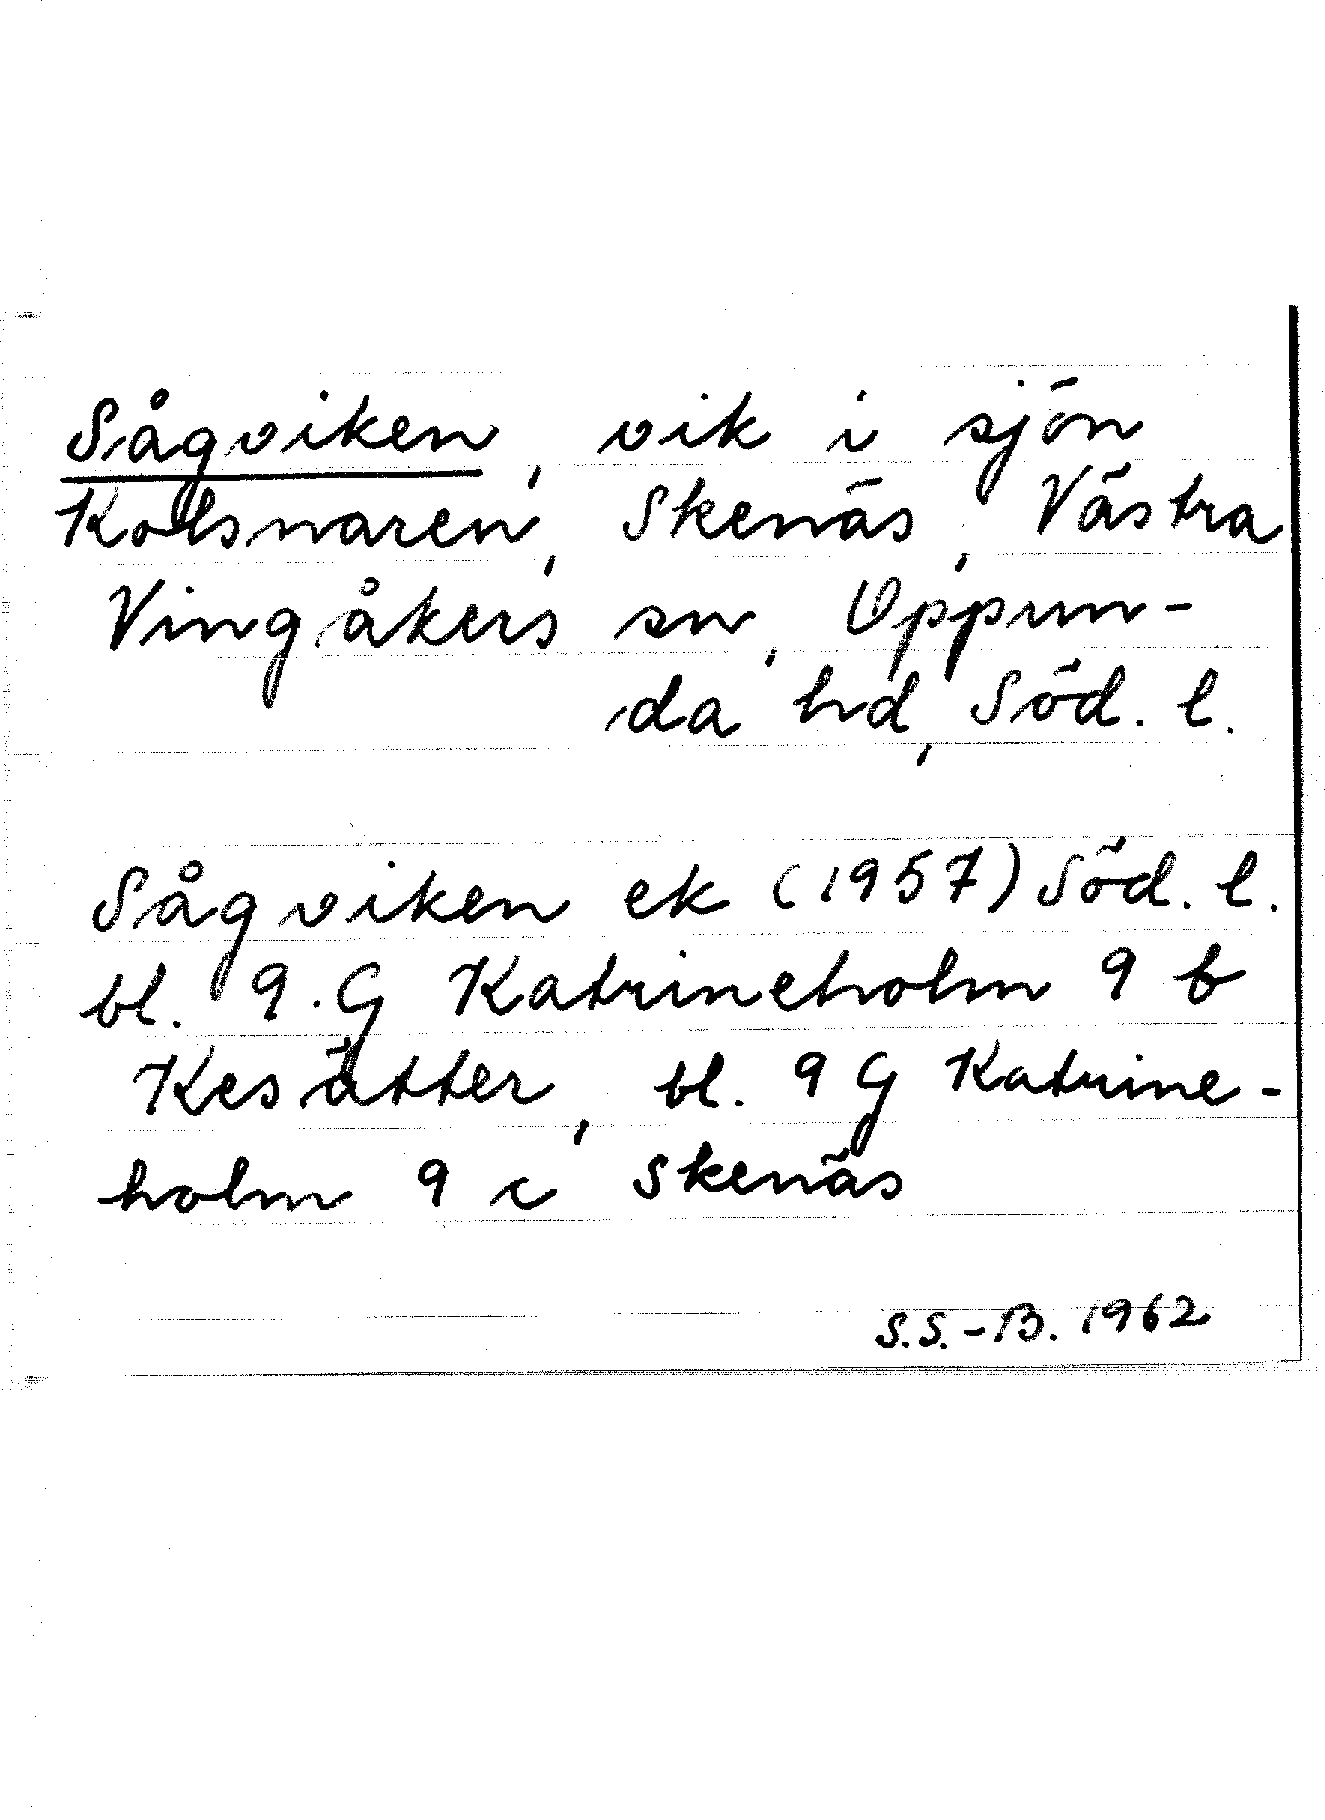 Sågviken, vik i sjön
Kolsnaren, Skenäs, Västra
Vingåkers sn, Oppun-
da hd, Söd. l.
Sågviken ek (1957) Söd. l.
bl. 9.G Katrineholm 9 b
Kesätter, bl. 9 G Katrine-
holm 9 c Skenäs
S.S.-B. 1962